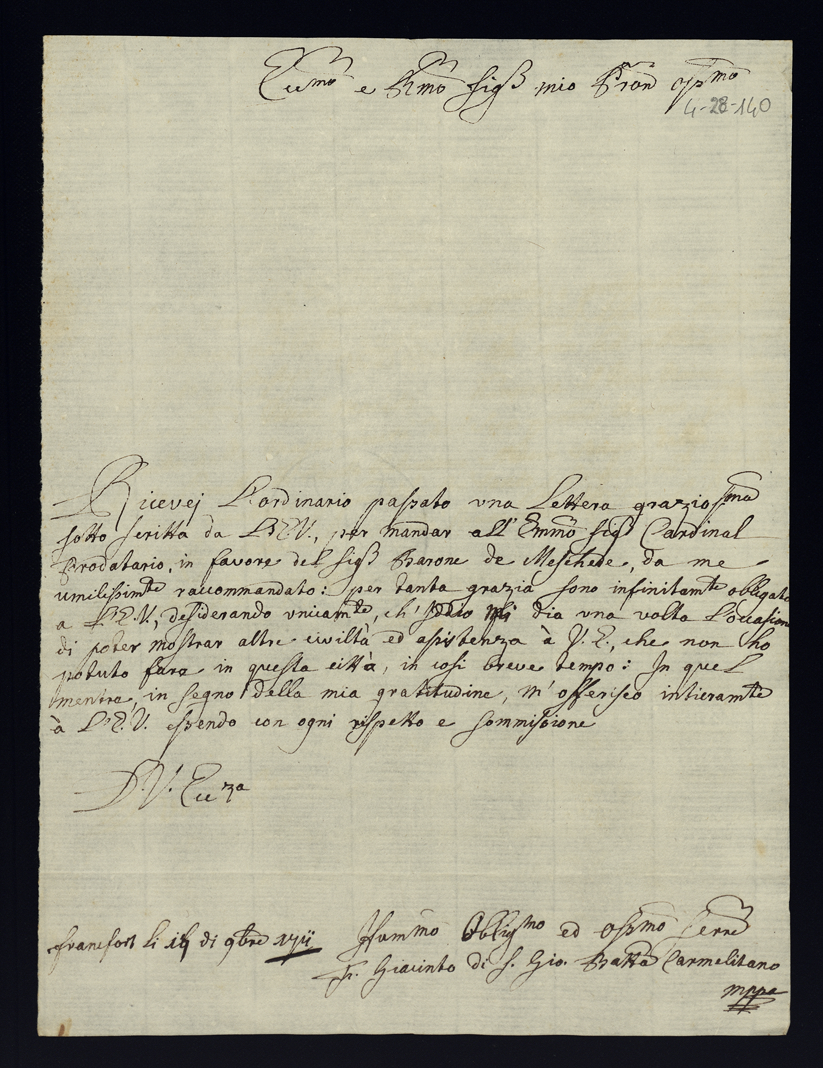 Eccmo e Rmo Sigr mio Pron ossmo
4-28-140
Ricevej L'ordinario passato vna Lettera graziosma
sotto scritta da L'E.V., per mandar all' Emmo sigr Cardinal
Prodatario, in favore del sigr Barone de Meschede, da me
umilissimte raccommandato: per tanta grazia sono infinitamte obbligato
a L'E.V., desiderando vnicamte, ch' Iddio mi dia vna volta L'occasione
di poter mostrar altre civiltà ed assistenza à V.E., che non ho
potuto fare in questa città, in così breve tempo: In quel
mentre, in segno della mia gratitudine, m' offerisco intieramte
à L'E.V. essendo con ogni rispetto e sommissione
D. V. Eccza
Francfort li di 9bre 1711
Hummo Obbligmo ed ossmo serre
F. Giacinto di S. Gio. Batta Carmelitano
mppa